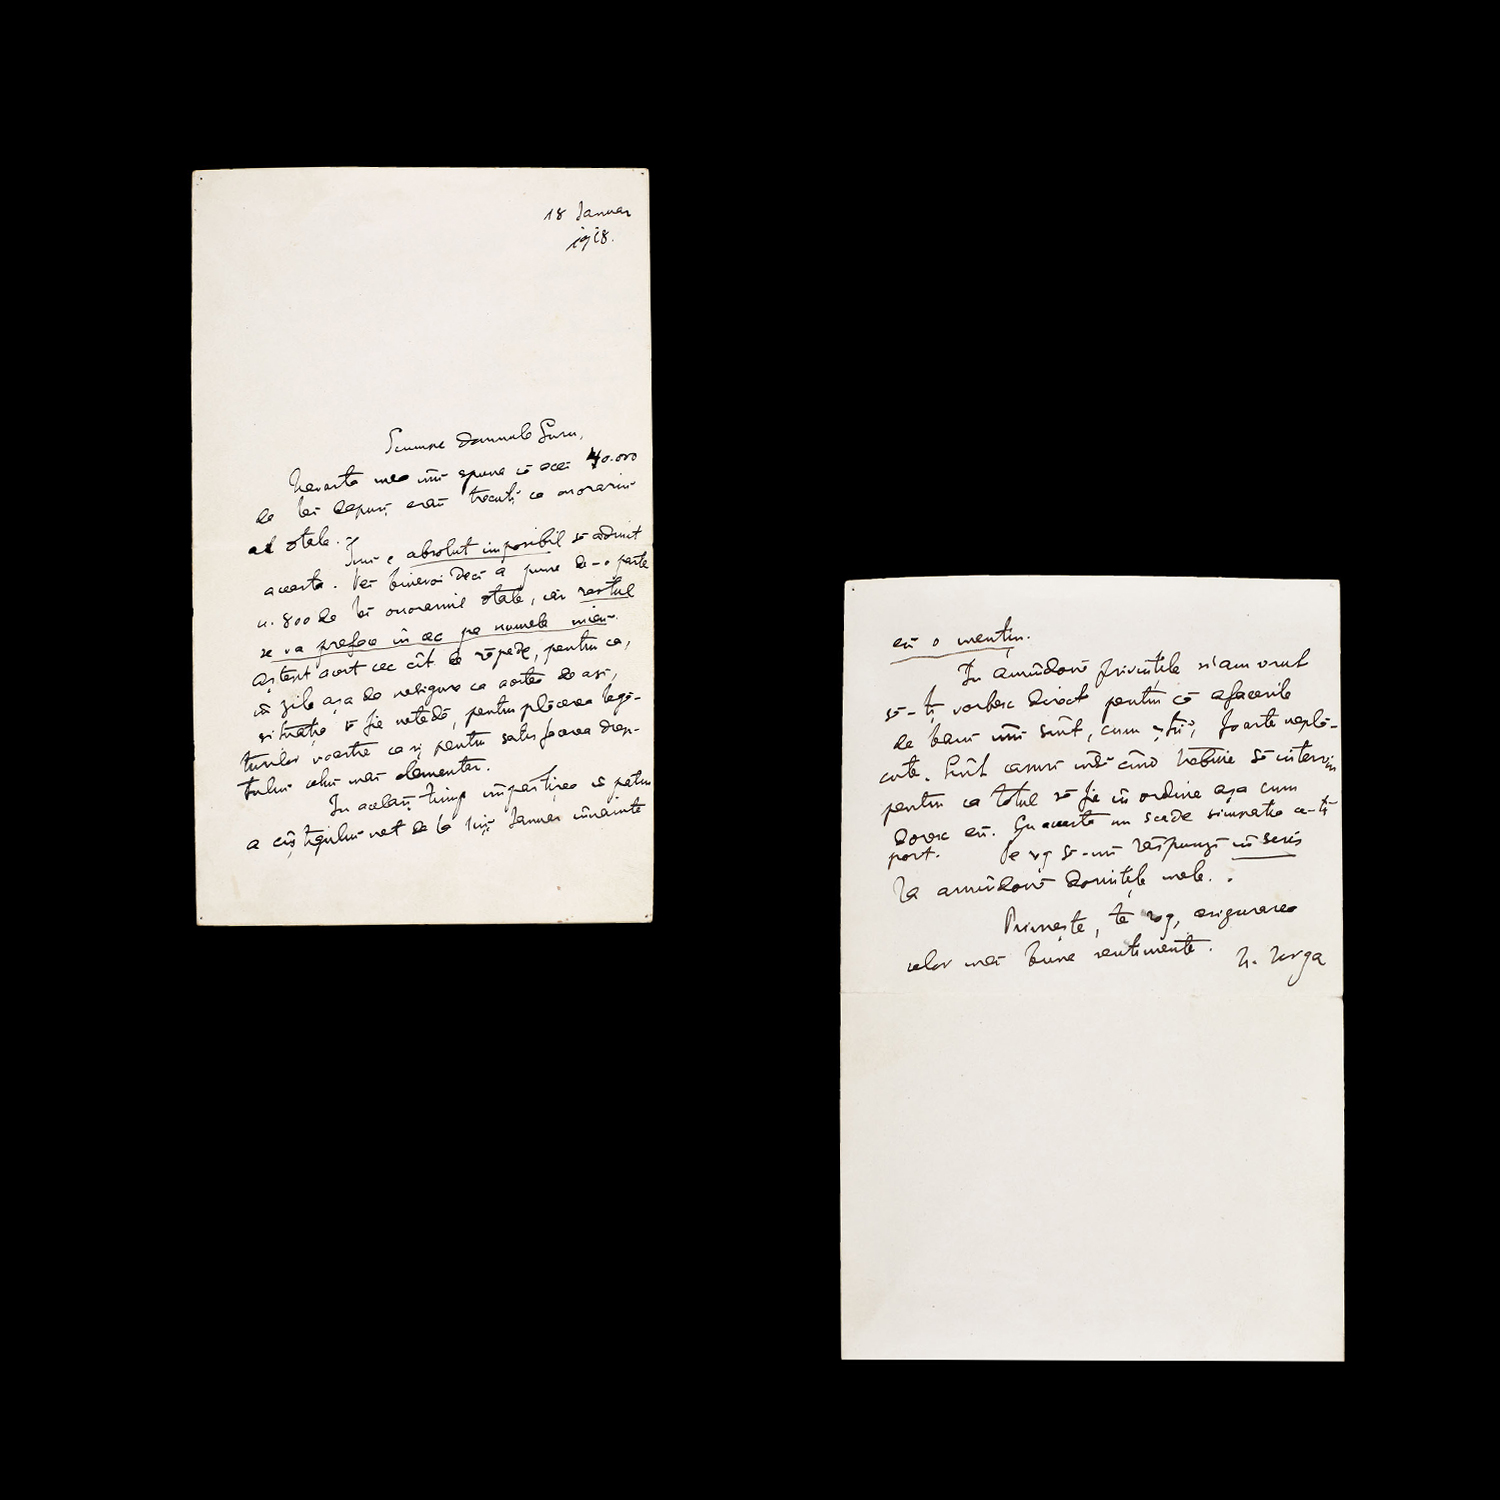 18 Ianuar
1918.
Scumpe Domnule
Nevasta mea îmi spune că acei 40.000
de lei depuși erau trecuți ca onorariu
al dtale. -
Îmi e absolut imposibil să admit
aceasta. Vei binevoi deci a pune de-o parte
800 de lei onorariul dtale, iar restul
se va preface în cec pe numele mieu.
Aștept acest cec cît de răpede, pentru ca,
în zile așa de nesigure ca acelea de azi,
situația să fie netedă, pentru plăcerea legă-
turilor noastre ca și pentru satisfacerea drep-
tului celui mai elementar.
În același timp împărțirea în patru
a cîștigului net de la 1iu Ianuar înainte
eu o mențin.
În amîndouă privințile ți-am vrut
să-ți vorbesc direct pentru că afacerile
de bani îmi sînt, cum știi, foarte neplă-
cute. Sînt casuri însă cînd trebuie să intervin
pentru ca totul să fie în ordine așa cum
doresc eu. Cu aceasta nu scade simpatia ce-ți
port. Te rog să-mi răspunzi în scris
la amîndouă dorințile mele.
Primește, te rog, asigurarea
celor mai bune sentimente.
N. Iorga